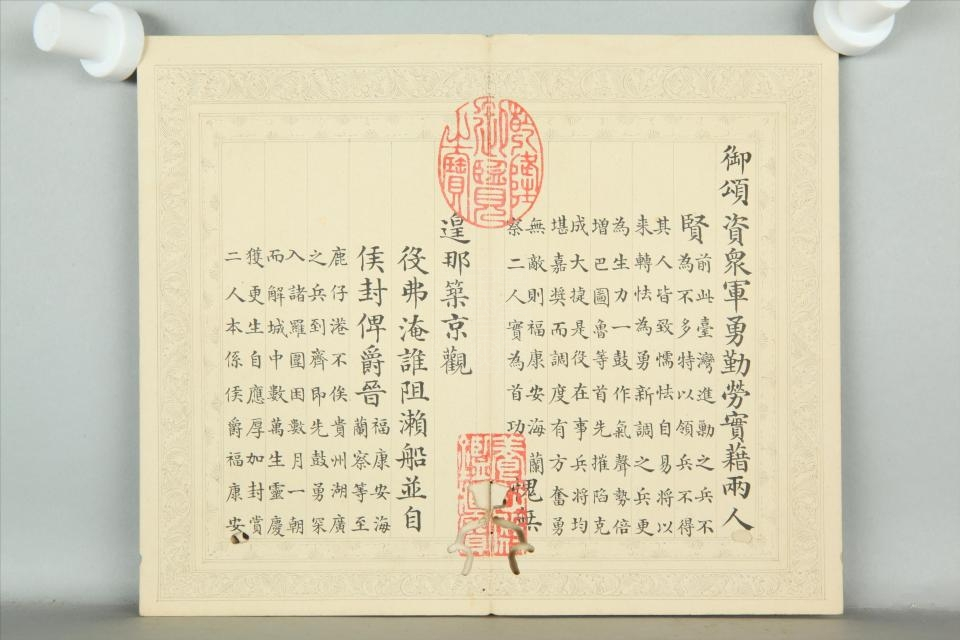 御頌資衆軍勇勤勞實藉兩人
賢前此臺灣進勦之兵不
為不多特以領兵不得
其人皆致懦怯自易將以
来轉怯為勇新調之兵更
為生力一鼓作氣聲勢倍
增巴圖魯等首先摧陷克
成大捷是役在事兵將均
堪嘉奬而調度有方奮勇
無敵則福康安海蘭
察二人實為首功
愧無
遑那築京觀
役弗淹誰阻瀨船並自
侯封俾爵晉福康安海
蘭察等至
鹿仔港不俟貴州湖廣
之兵到齊即先鼓勇罙
入諸羅圍困數月一朝
而解城中數萬生靈慶
獲更生自應厚加封賞
二人本係侯爵福康安
乾隆御覽之寶